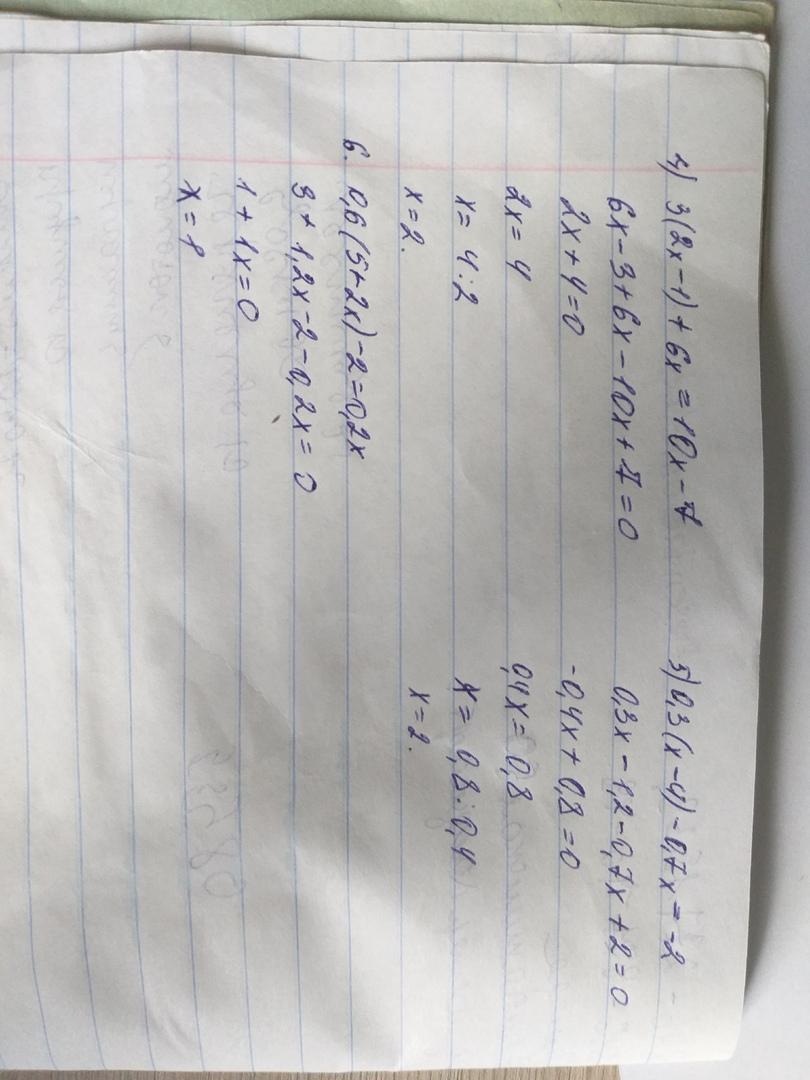 4) 3(2x-1)+6x=10x-7
6x-3+6x-10x+7=0
2x+4=0
2x=4
x=4:2
x=2.
5) 0,3(x-4)-0,7x=-2
0,3x-1,2-0,7x+2=0
-0,4x+0,8=0
0,4x=0,8
x=0,8:0,4
x=2.
6. 0,6(5+2x)-2=0,2x
3+1,2x-2-0,2x=0
1+1x=0
x=1